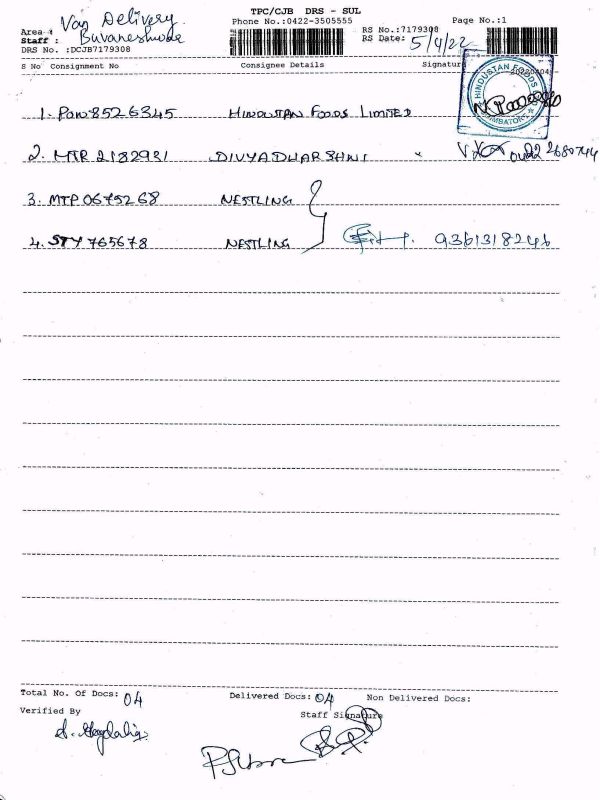 TPC/CJB DRS - SUL
Area : Van Delivery. Phone No.:0422-3505555 Page No.:1
Staff : RS No.:7179308
DRS No. :DCJB7179308 RS Date: 5/4/22
S No Consignment No Consignee Details Signature
HINDUSTAN FOODS
COIMBATORE
1. 8526345 HINDUSTAN FOODS LIMITED
2. MTR 2182931 DIVYADHARSHNI
3. MTP 0675268 NESTLING
4. STY 765678 NESTLING 9361318246
Total No. Of Docs: 04 Delivered Docs: 04 Non Delivered Docs:
Verified By Staff Signature